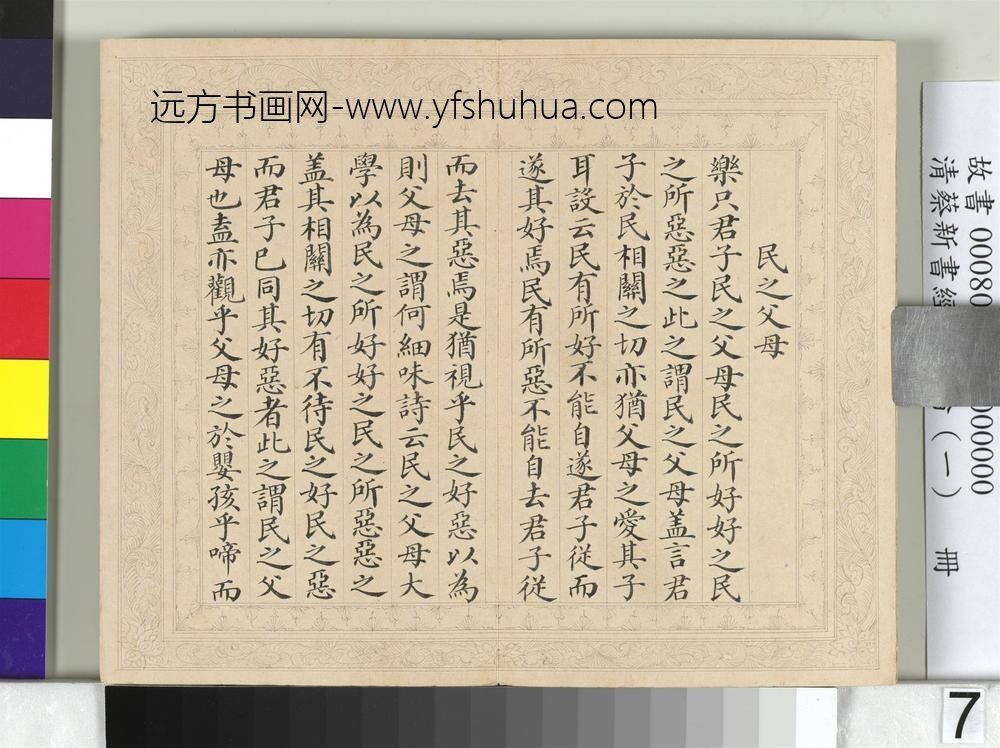 远方书画网-www.yfshuhua.com
民之父母
樂只君子民之父母民之所好好之民
之所惡惡之此之謂民之父母盖言君
子於民相關之切亦猶父母之愛其子
耳設云民有所好不能自遂君子従而
遂其好焉民有所惡不能自去君子従
而去其惡焉是猶視乎民之好惡以為
則父母之謂何細味詩云民之父母大
學以為民之所好好之民之所惡惡之
盖其相關之切有不待民之好民之惡
而君子已同其好惡者此之謂民之父
母也盍亦觀乎父母之於嬰孩乎啼而
故書 00080
000000
清蔡新書經
(一) 冊
7